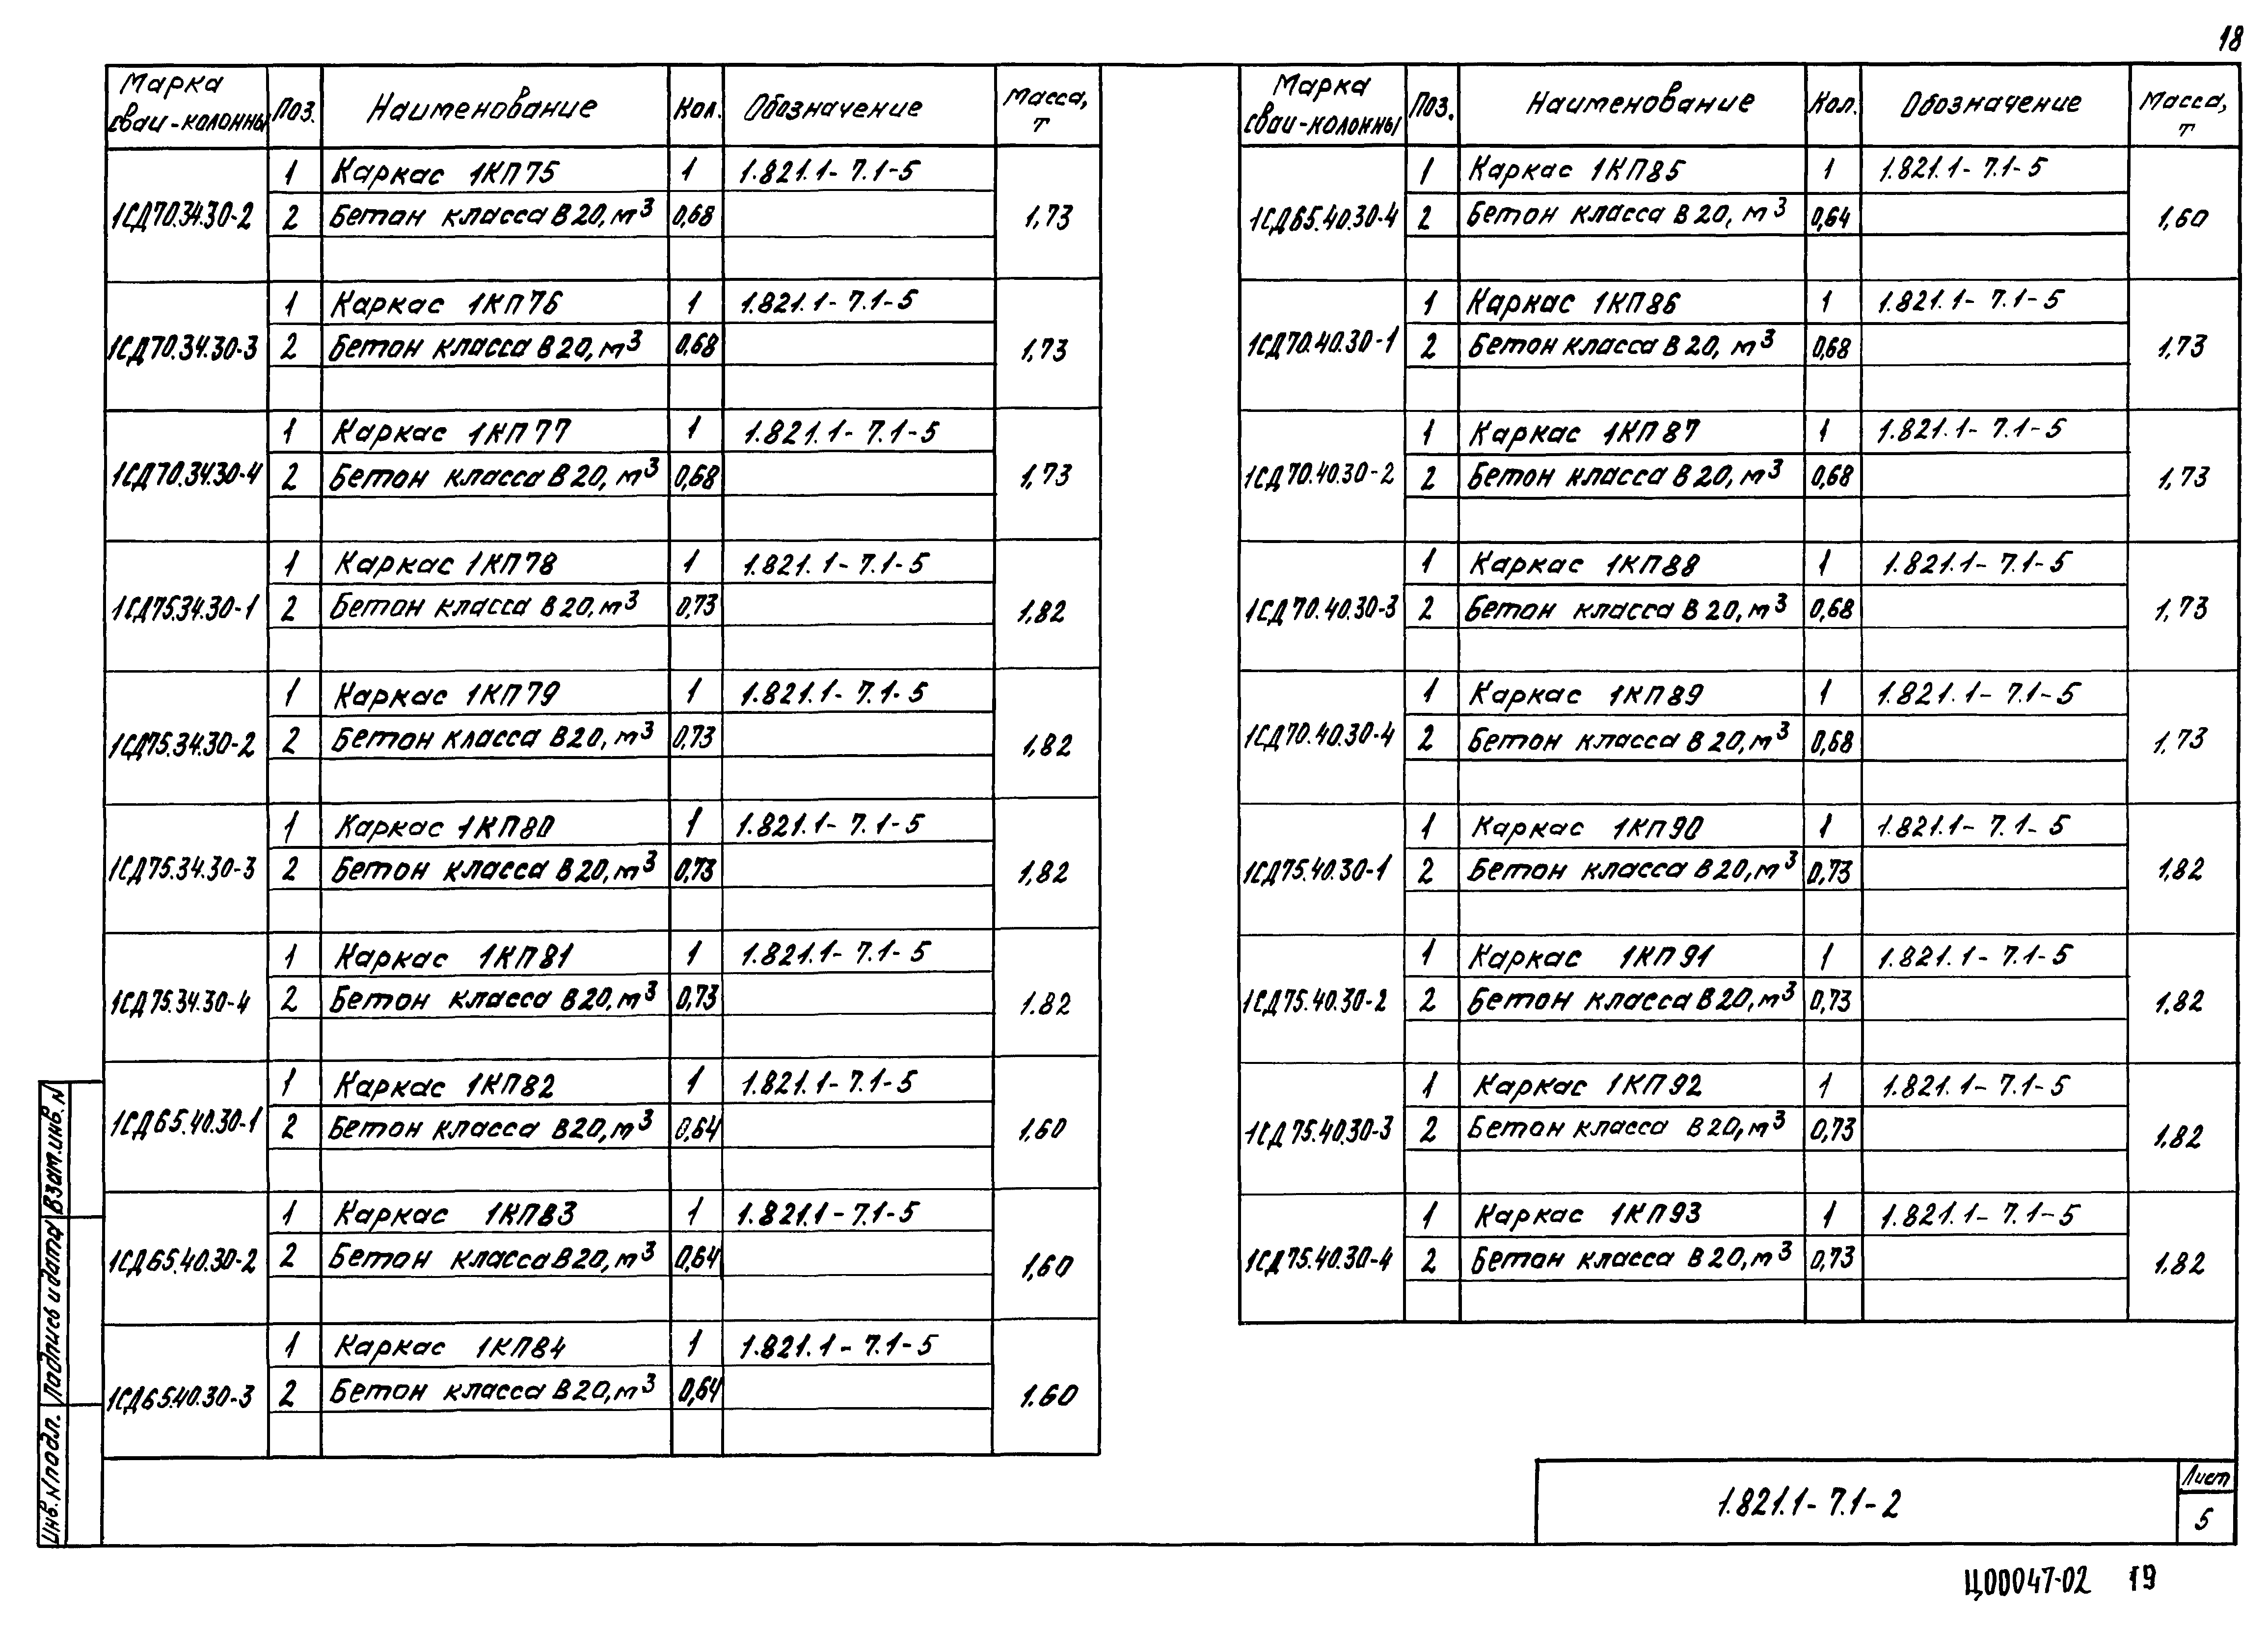 18
Марка сваи-колонны Поз. Наименование Кол. Обозначение Масса, т
1СД70.34.30-2 1 Каркас 1КП75 1 1.821.1-7.1-5 1,73
2 Бетон класса В20, м³ 0,68
1СД70.34.30-3 1 Каркас 1КП76 1 1.821.1-7.1-5 1,73
2 Бетон класса В20, м³ 0,68
1СД70.34.30-4 1 Каркас 1КП77 1 1.821.1-7.1-5 1,73
2 Бетон класса В20, м³ 0,68
1СД75.34.30-1 1 Каркас 1КП78 1 1.821.1-7.1-5 1,82
2 Бетон класса В20, м³ 0,73
1СД75.34.30-2 1 Каркас 1КП79 1 1.821.1-7.1-5 1,82
2 Бетон класса В20, м³ 0,73
1СД75.34.30-3 1 Каркас 1КП80 1 1.821.1-7.1-5 1,82
2 Бетон класса В20, м³ 0,73
1СД75.34.30-4 1 Каркас 1КП81 1 1.821.1-7.1-5 1.82
2 Бетон класса В20, м³ 0,73
1СД65.40.30-1 1 Каркас 1КП82 1 1.821.1-7.1-5 1,60
2 Бетон класса В20, м³ 0,64
1СД65.40.30-2 1 Каркас 1КП83 1 1.821.1-7.1-5 1,60
2 Бетон класса В20, м³ 0,64
1СД65.40.30-3 1 Каркас 1КП84 1 1.821.1-7.1-5 1.60
2 Бетон класса В20, м³ 0,64
Марка сваи-колонны Поз. Наименование Кол. Обозначение Масса, т
1СД65.40.30-4 1 Каркас 1КП85 1 1.821.1-7.1-5 1,60
2 Бетон класса В20, м³ 0,64
1СД70.40.30-1 1 Каркас 1КП86 1 1.821.1-7.1-5 1,73
2 Бетон класса В20, м³ 0,68
1СД70.40.30-2 1 Каркас 1КП87 1 1.821.1-7.1-5 1,73
2 Бетон класса В20, м³ 0,68
1СД70.40.30-3 1 Каркас 1КП88 1 1.821.1-7.1-5 1,73
2 Бетон класса В20, м³ 0,68
1СД70.40.30-4 1 Каркас 1КП89 1 1.821.1-7.1-5 1,73
2 Бетон класса В20, м³ 0,68
1СД75.40.30-1 1 Каркас 1КП90 1 1.821.1-7.1-5 1,82
2 Бетон класса В20, м³ 0,73
1СД75.40.30-2 1 Каркас 1КП91 1 1.821.1-7.1-5 1,82
2 Бетон класса В20, м³ 0,73
1СД75.40.30-3 1 Каркас 1КП92 1 1.821.1-7.1-5 1.82
2 Бетон класса В20, м³ 0,73
1СД75.40.30-4 1 Каркас 1КП93 1 1.821.1-7.1-5 1.82
2 Бетон класса В20, м³ 0,73
Инв. N подл. Подпись и дата Взам. инв. N
1.821.1-7.1-2
Лист
5
Ц00047-02 19